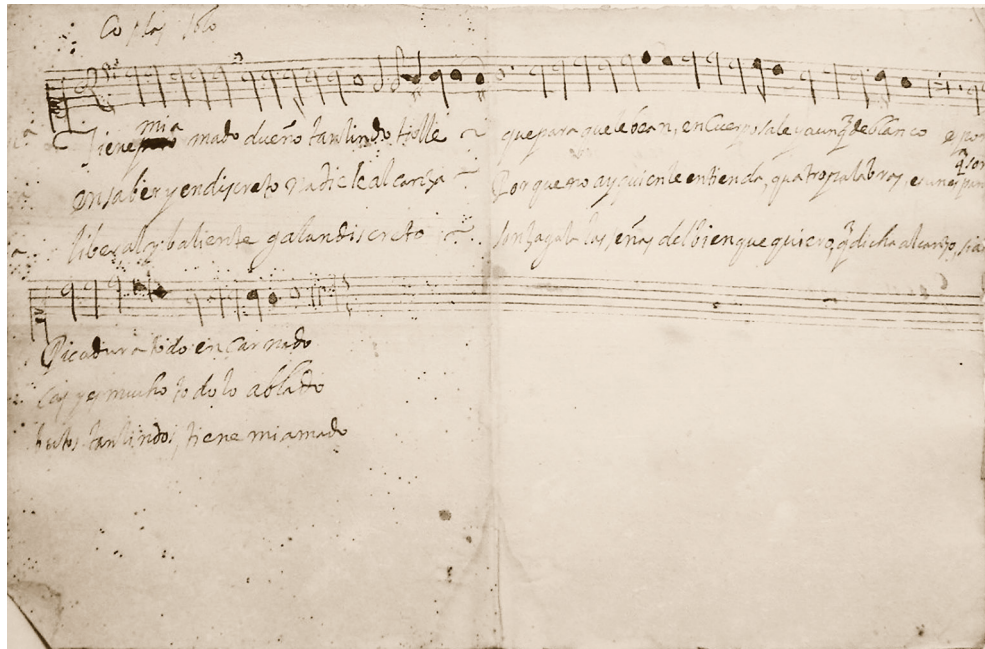 Coplas solo
Tiene mi a mado dueño tan lindo tiolle ~ que para que le bean, en Cuerpo sale y aunq̃ de blanco e por
en saber y en discreto nadie le alcanza ~ Porque no ay quien le entienda, quatro palabras, es una
liberal y baliente galan discreto ~ son zagala las señas del bien que quiero, q̃ dicha alcanzo, si a
Picadura todo encarnado
y es mucho todo lo ablado
tan lindos, tiene mi amado